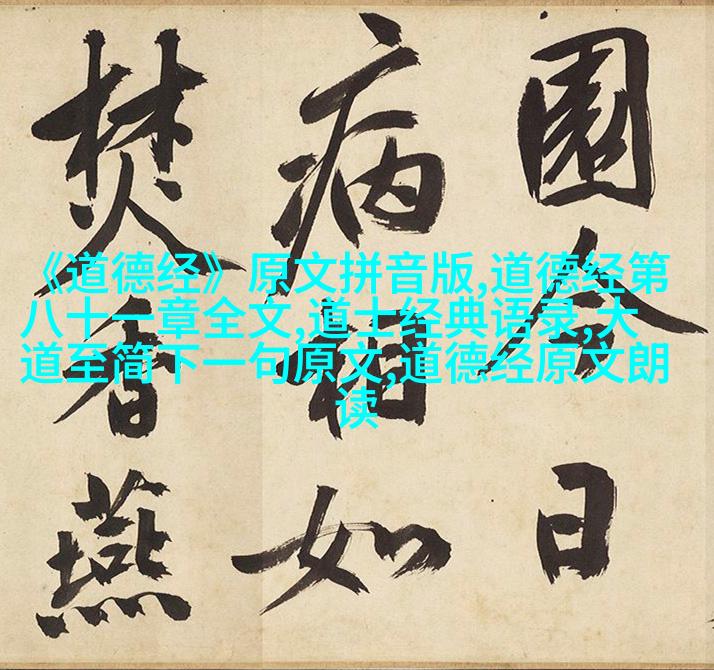 園今日
病相如
焚香燕
《道德经》原文拼音版,道德经第
八十一章全文,道士经典语录,大
道至简下一句原文,道德经原文朗
读